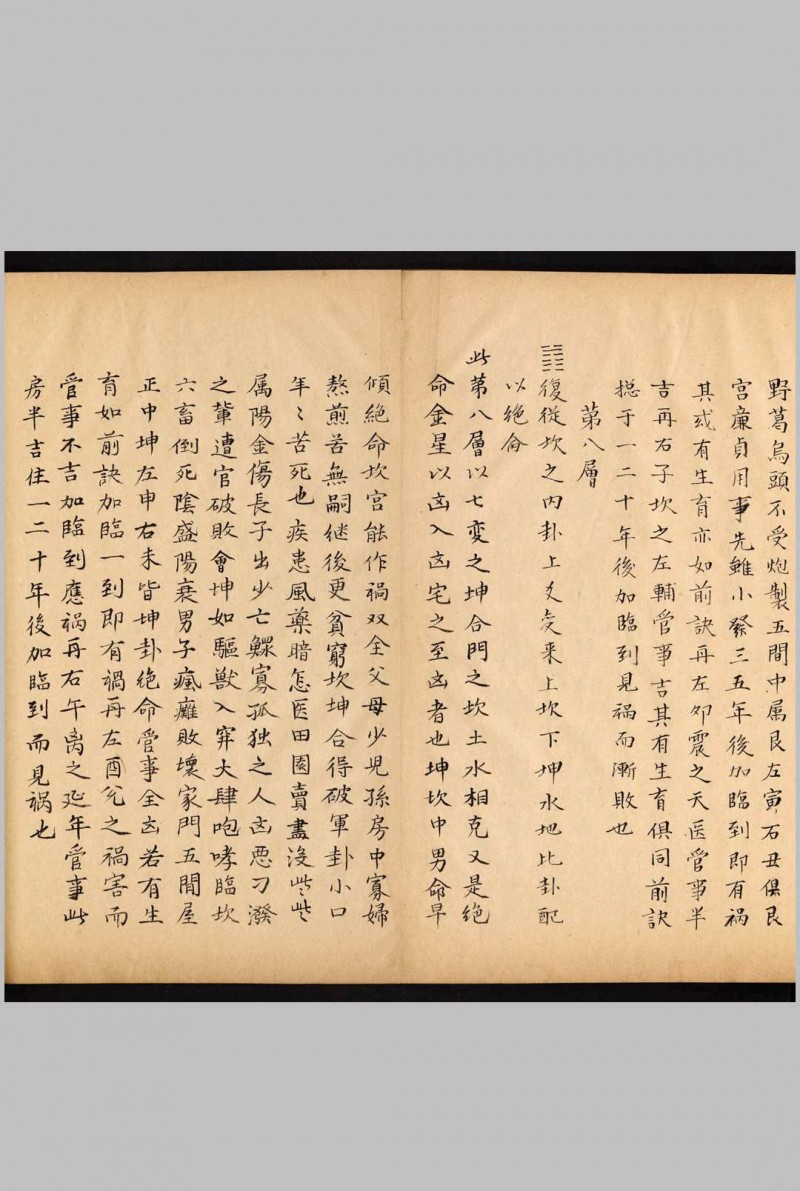 野葛烏頭不受炮製五間中属艮左寅右丑俱艮
宮廉貞用事先雖小發三五年後加臨到即有禍
其或有生育亦如前訣再左卯震之天医管事半
吉再右子坎之左輔管事吉其有生育俱同前訣
摠于一二十年後加臨到見禍而漸敗也
第八層
復從坎之內卦上爻変來上坎下坤水地比卦配
以絶命
此第八層以七变之坤合門之坎土水相克又是绝
命金星以凶入凶宅之至凶者也坤坎中男命早
傾絶命坎宮能作禍双全父母少児孫房中寡婦
熬煎苦無嗣継後更貧窮坎坤合得破軍卦小口
年〻苦死也疾患風藥暗怎医田園賣盡沒些些
属陽金傷長子出少亡鰥寡孤独之人凶悪刁潑
之輩遭官破敗會坤如驅獸入穽大肆咆哮臨坎
六畜倒死陰盛陽衰男子瘋癱敗壞家門五間屋
正中坤左申右未皆坤卦绝命管事全凶若有生
育如前訣加臨一到即有禍再左酉兊之禍害而
管事不吉加臨到應禍再右午离之延年管事此
房半吉住一二十年後加臨到而見禍也